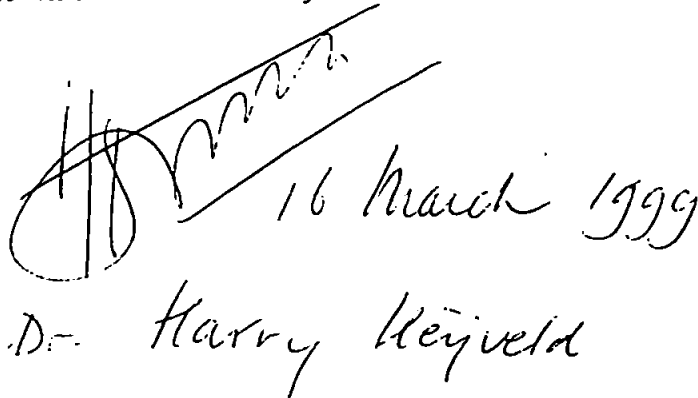 16 March 1999
Dr. Harry Heijveld